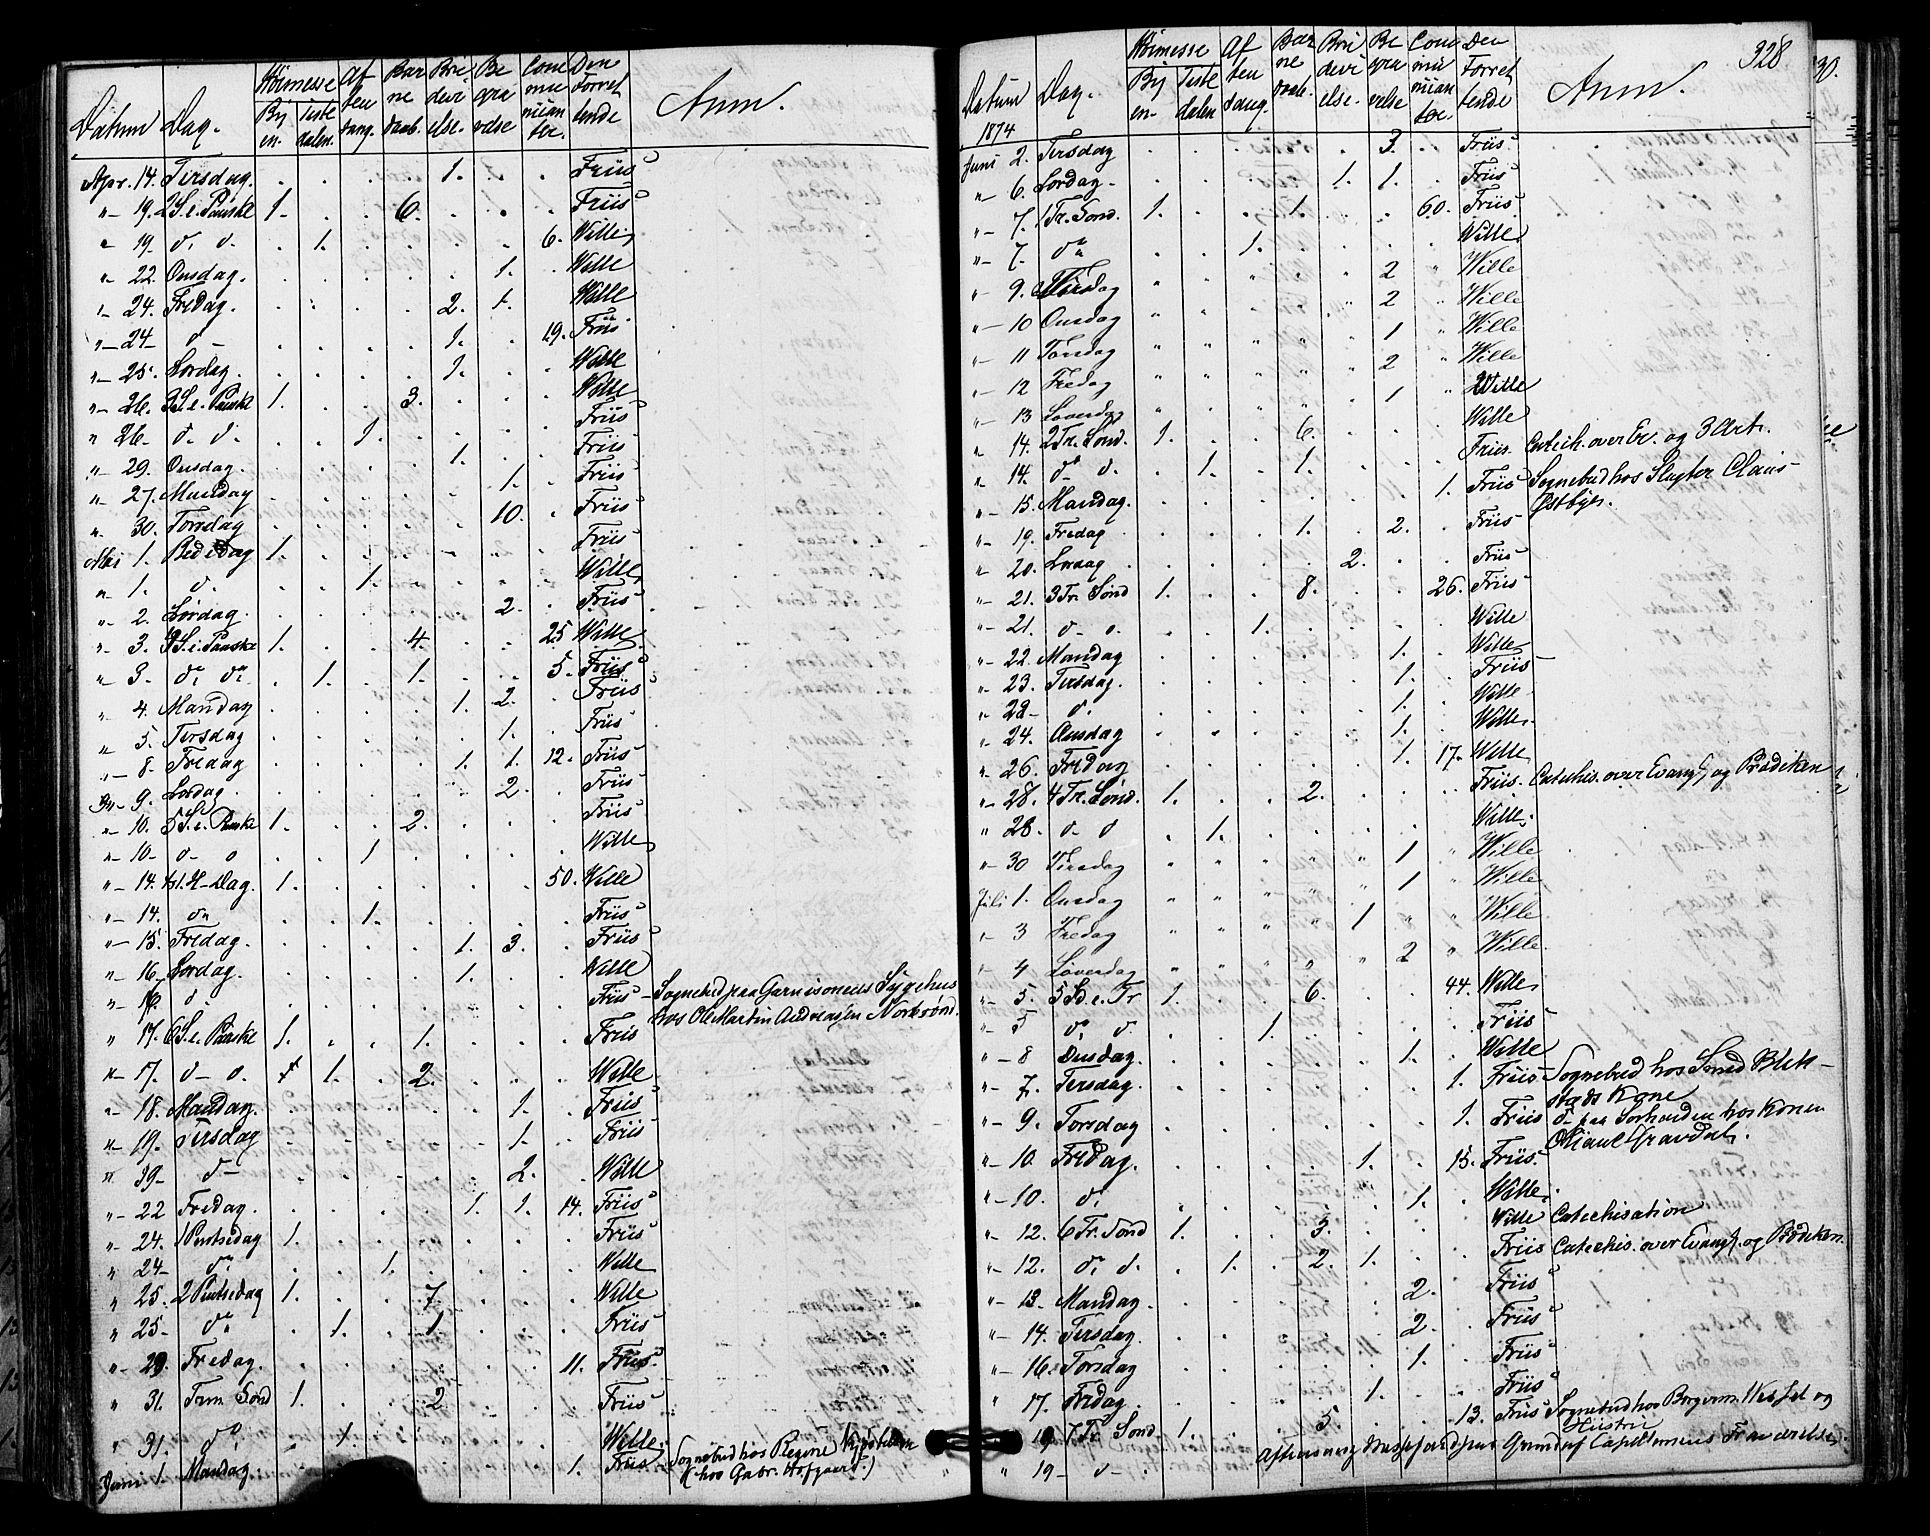 Datum Dag. Høimesse Byen. Tistedalen. Aftensang. Barnedaab. Brudevielse. Begravelse Communicanter. Den Forrettende Anm.
Apr. 14. Tirsdag. . . . . 1. . . Friis
"- 19. 2 S. e. Paaske 1. . . 6. . . . Friis
" 19. d. d. . 1. . . . . 6. Wille
" 22. Onsdag. . . . . . 1. . Wille
"- 24. Fredag. . . . . 2. 1. . Wille
"- 24- d- . . . . 1. . 19. Friis
"- 25. Lørdag. . . . . 1. . . Wille
"- 26. 3 S. e. Paaske 1. . . 3. . . . Wille
" 26- d. d. . . 1. . . . . Friis
"- 29. Onsdag. . . . . 1. . . Friis
" 27. Mandag . . . . . 1. . Friis
" 30. Torsdag . . . . . 10. . Friis
Mai 1. Bededag 1. . . . . . . Friis
"- 1. d. . . 1. . . . . Wille
"- 2. Lørdag. . . . . . 2. . Friis
"- 3. 4 S. e. Paaske 1. . . 4. . . 25 Wille
" 3. d. d. . 1. . 1. . . 5. Friis
" 4. Mandag . . . . 1. 2. . Friis
" 5. Tirsdag . . . . . 1. . Friis
"- 8. Fredag . . . . 1. 1. 12. Friis
"- 9. Lørdag. . . . . . 2. . Friis
"- 10. 5 S. e. Paaske 1. . . 2. . . . Friis
"- 10- d- d . . 1 . . . . Wille
"- 14. Kr. H-Dag. 1. . . . . . 50. Wille
"- 14. do . . 1. . . . . Friis
"- 15. Fredag. . . . . 1. 3. . Friis
"- 16. Lørdag. . . . . 1. . . Wille
"- 16. d. . . . . . . . Friis - Sognebud paa Garnisonens Sygehus
hos Ole Martin Andreasen
" 17. 6 S. e. Paaske 1. . . 1. . . . Friis
"- 17. d- d. . 1. . 2. . . . Wille
"- 18. Mandag. . . . . . 1. . Friis
"- 19. Tirsdag . . . . . 1. . Friis
" 19- d- . . . . . 2. . Wille
"- 22 Fredag. . . . . 1. 1. 14. Friis
"- 24. 1 Pintsedag 1. . . . . . . Friis
" 24- d. . . 1. . . . . Wille
" 25. 2 Pintsedag 1. . . 7. . . . Wille
" 25- do . 1. . 1. . . . Friis
"- 29. Fredag. . . . . . . 11. Friis
" 31. Trin. Sønd 1. . . 2. . . . Friis
" 31. do . 1. . . . . . Wille
Juni 1. Mandag. . . . . . . 1. Friis Sognebud hos Regine
(hos Gabr. Hofgaard.)
328
Datum Dag. Høimesse Byen- Tistedalen Aftensang. Barnedaab. Brudevielse. Begravelse Communicanter. Den Forrettende Anm.
1874
Juni 2. Tirsdag . . . . . 3. . Friis
"- 6. Lørdag. . . . . 1. 1. . Friis
"- 7. 1 Tr. Sønd. 1. . . 1. . . 60. Friis
"- 7. do . . 1. . . . . Wille
"- 9. Tirsdag " " " " " 2 " Wille
"- 10 Onsdag " " " " " 2 " Wille
"- 11 Torsdag " " " " " 1 " Wille
"- 12 Fredag " " " " " 2 " Wille
"- 13 Løverdag " " " " " 1 " Wille
" 14. 2 Tr. Sønd. 1. . . 6. . . . Wille
" 14. d. d. . 1. . 1. . . . Friis. Catech. over Ev. og 3 Art.
"- 15. Mandag. . . . . . . 1. Friis Sognebud hos Slagter Claus
Østbye.
"- 19. Fredag . . . . 1. . 2. . Friis
"- 20. Lørdag . . . . 2. . . Friis
"- 21. 3 Tr. Sønd 1. . . 8. . . 26. Friis
"- 21. d- d. . . 1. . . . . Wille
"- 22. Mandag . . . . . 1. . Wille
"- 23. Tirsdag. . . . . . 1. . Friis
"- 23- d. . . . . . 1. . Wille
"- 24. Onsdag . . . . . 1. . Wille
"- 26. Fredag . . . . . 1. 17. Wille
"- 28. 4 Tr. Sønd. 1. . . 2. . . . Friis. Catechis. over Evang. og Prædiken
" 28. d- d . 1. . . . . . Wille
"- 30 Tirsdag " " " " " 1 " Wille
Juli 1. Onsdag " " " " " 1 " Wille
"- 3 Fredag " " " " 1 " " Wille
"- 4 Løverdag " " " " " 2 " Wille
"- 5. 5 Sd. e. Tr 1. . . 6. . . 44. Wille
"- 5 d. d. . . 1. . . . . Friis
"- 8 Onsdag. . . . . . 1. . Wille
"- 7. Tirsdag. . . . . . . 1. Friis- Sognebud hos Smed Blek-
stads Kone
"- 9. Torsdag . . . . . . 1. Friis d- paa Sørhauden hos Konen
Oliane Gravdal.
"- 10. Fredag. . . . . 1. . 15. Friis
"- 10. d. . . . . . 1. . Wille
"- 12. 6 Tr. Sønd 1. . . 3. . . . Wille Catechisation
"- 12. d. d. . 1. . 2. 1. . . Friis Catechis. over Evang. og Prædiken
"- 13- Mandag. . . . . . 2. . Friis
"- 14. Tirsdag. . . . . . 2. . Friis
"- 16. Torsdag . . . . . 1. . Friis
"- 17. Fredag. . . . . 1. . . Friis
" 19 7 Tr. Sønd 1. . . 5. . . 13. Friis Sognebud hos Borgerm. Wessel og
Hustru
" 19- d- Aftensang Grundet Capellanens Fraværelse.